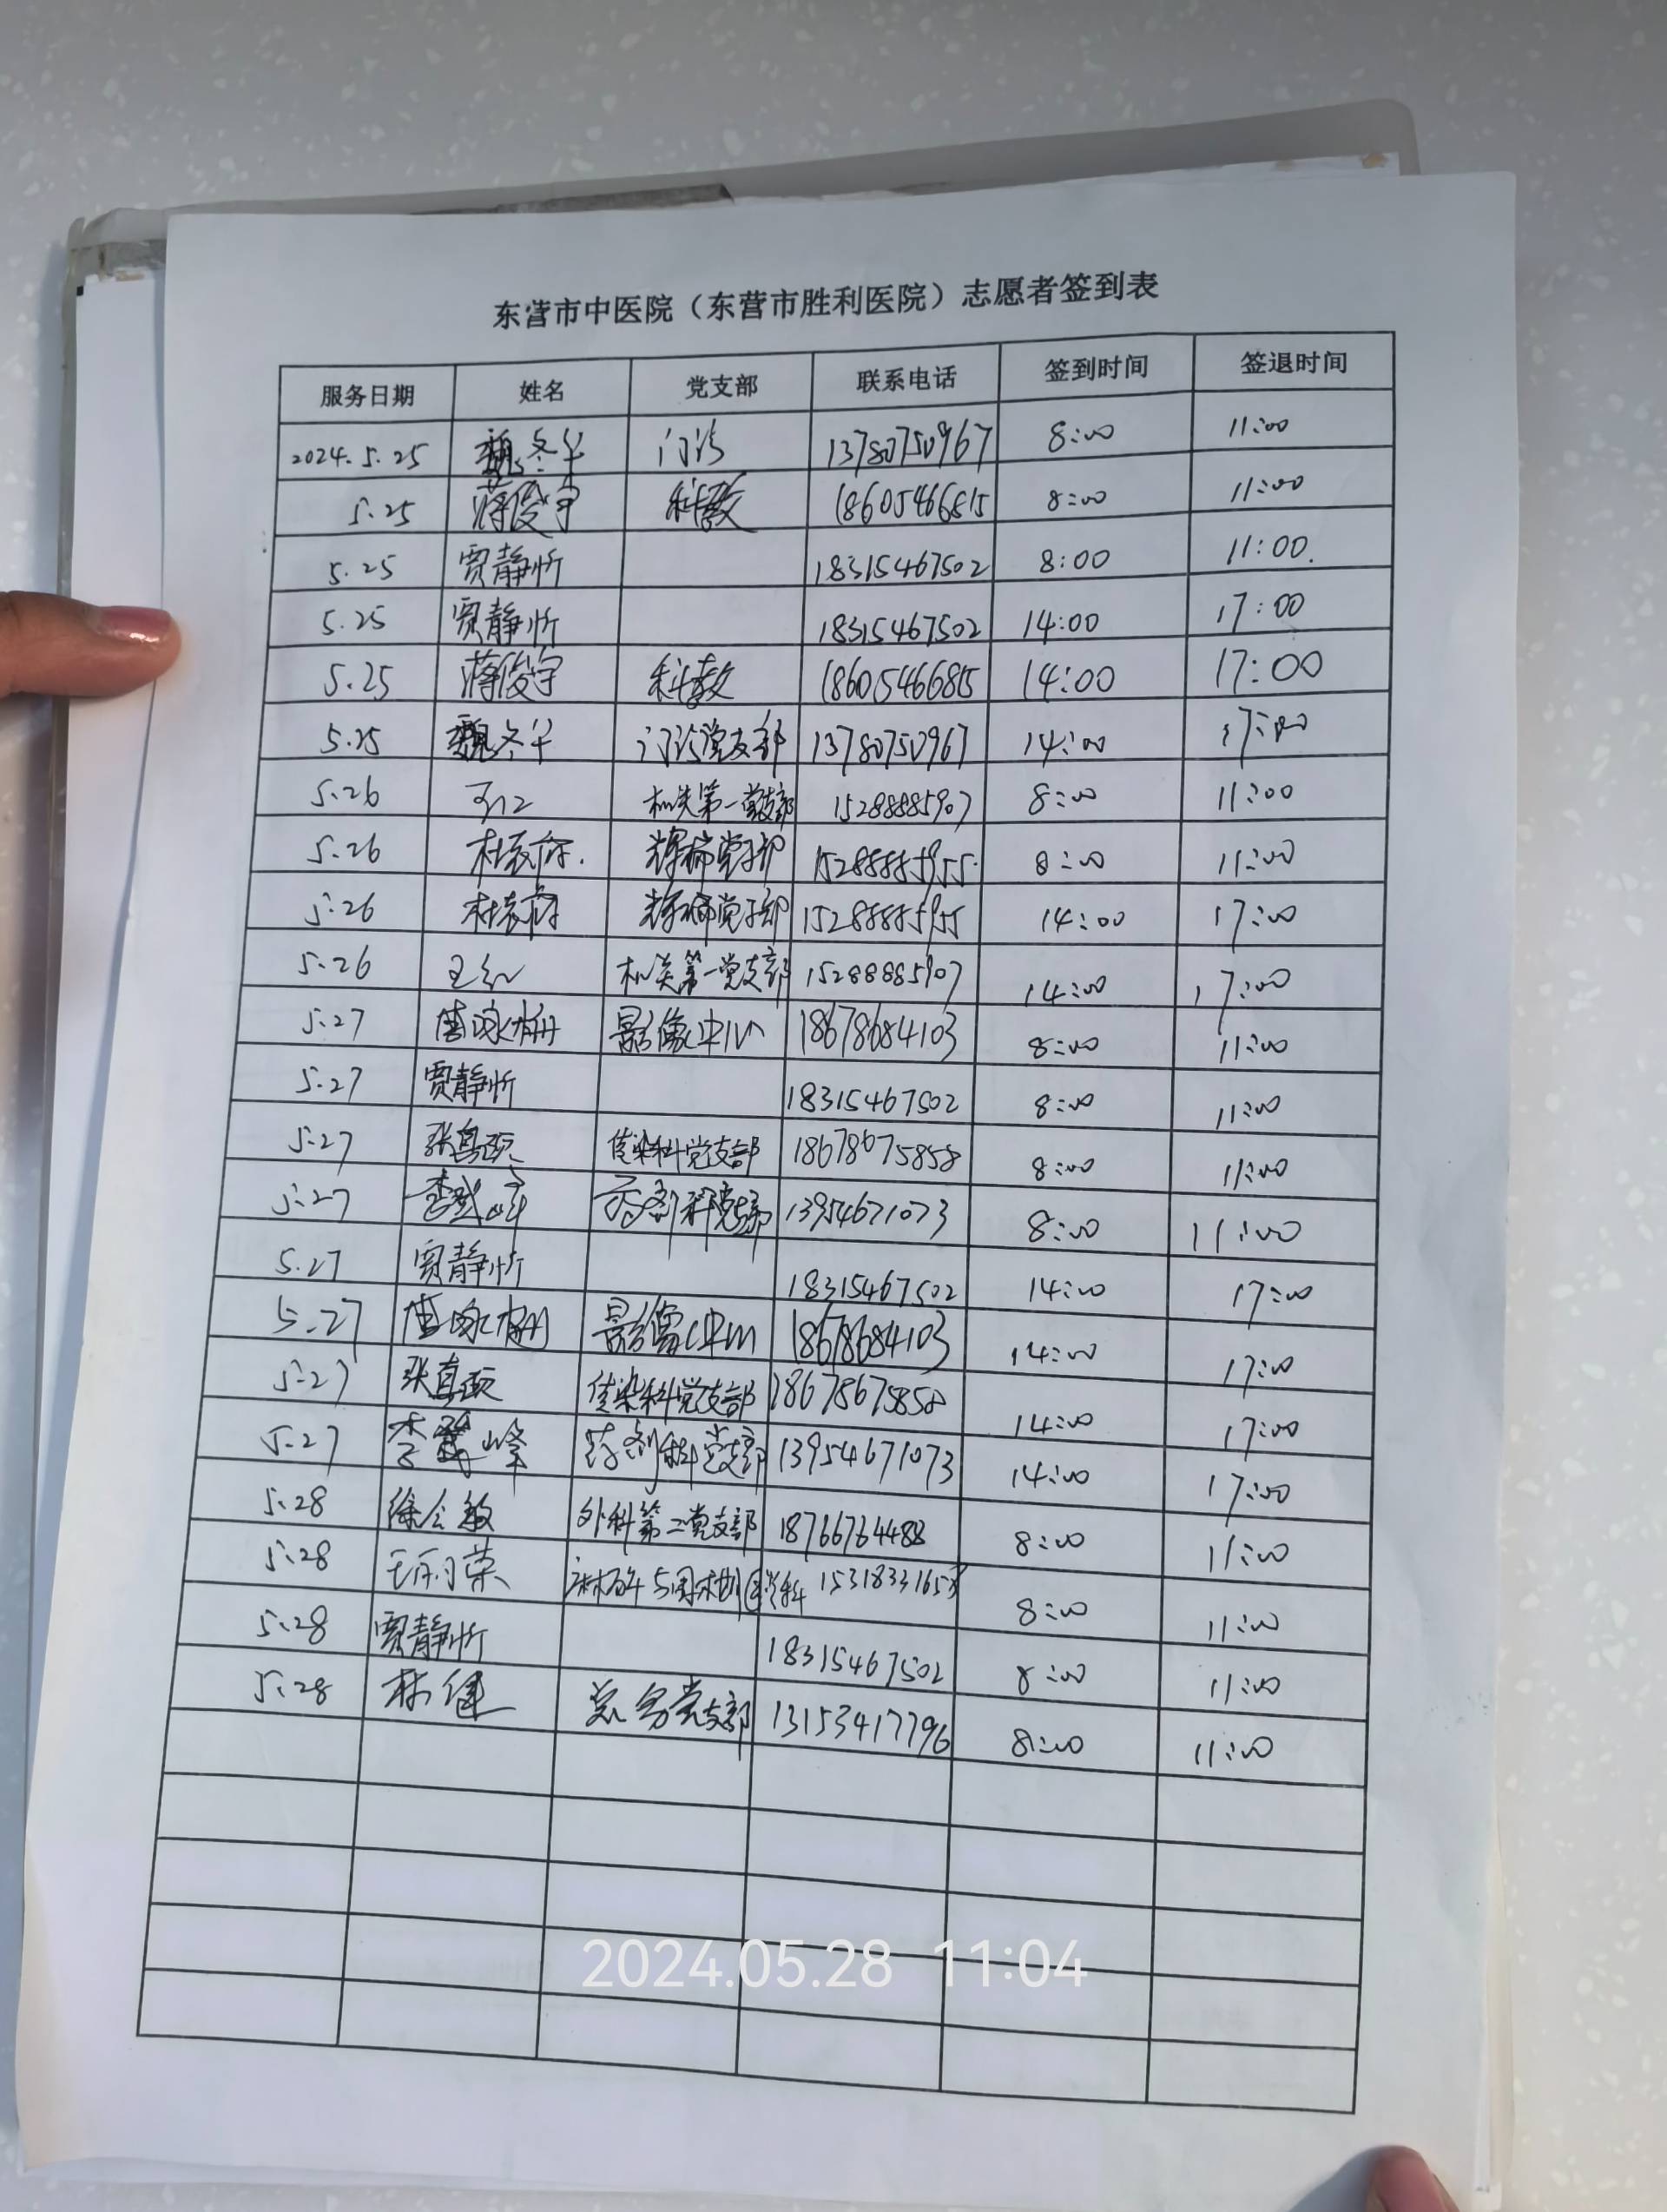 东营市中医院（东营市胜利医院）志愿者签到表
服务日期 姓名 党支部 联系电话 签到时间 签退时间
2024.5.25 魏冬华 门诊 13780750967 8:00 11:00
5.25 蒋俊宇 科教 18605466815 8:00 11:00
5.25 贾静忻 18315467502 8:00 11:00.
5.25 贾静忻 18315467502 14:00 17:00
5.25 蒋俊宇 科教 18605466815 14:00 17:00
5.25 魏冬华 门诊党支部 13780750967 14:00 17:00
5.26 机关第一党支部 15288885907 8:00 11:00
5.26 党支部 15288885955 8:00 11:00
5.26 党支部 15288885955 14:00 17:00
5.26 王红 机关第一党支部 15288885907 14:00 17:00
5.27 影像中心 18678684103 8:00 11:00
5.27 贾静忻 18315467502 8:00 11:00
5.27 张真硕 传染科党支部 18678675858 8:00 11:00
5.27 药剂科党支部 13954671073 8:00 11:00
5.27 贾静忻 18315467502 14:00 17:00
5.27 影像中心 18678684103 14:00 17:00
5.27 张真硕 传染科党支部 18678675858 14:00 17:00
5.27 药剂科党支部 13954671073 14:00 17:00
5.28 徐会敏 外科第二党支部 18766764488 8:00 11:00
5.28 王丽荣 麻醉与围术期医学科 8:00 11:00
5.28 贾静忻 18315467502 8:00 11:00
5.28 林健 总务党支部 13153417796 8:00 11:00
2024.05.28 11:04